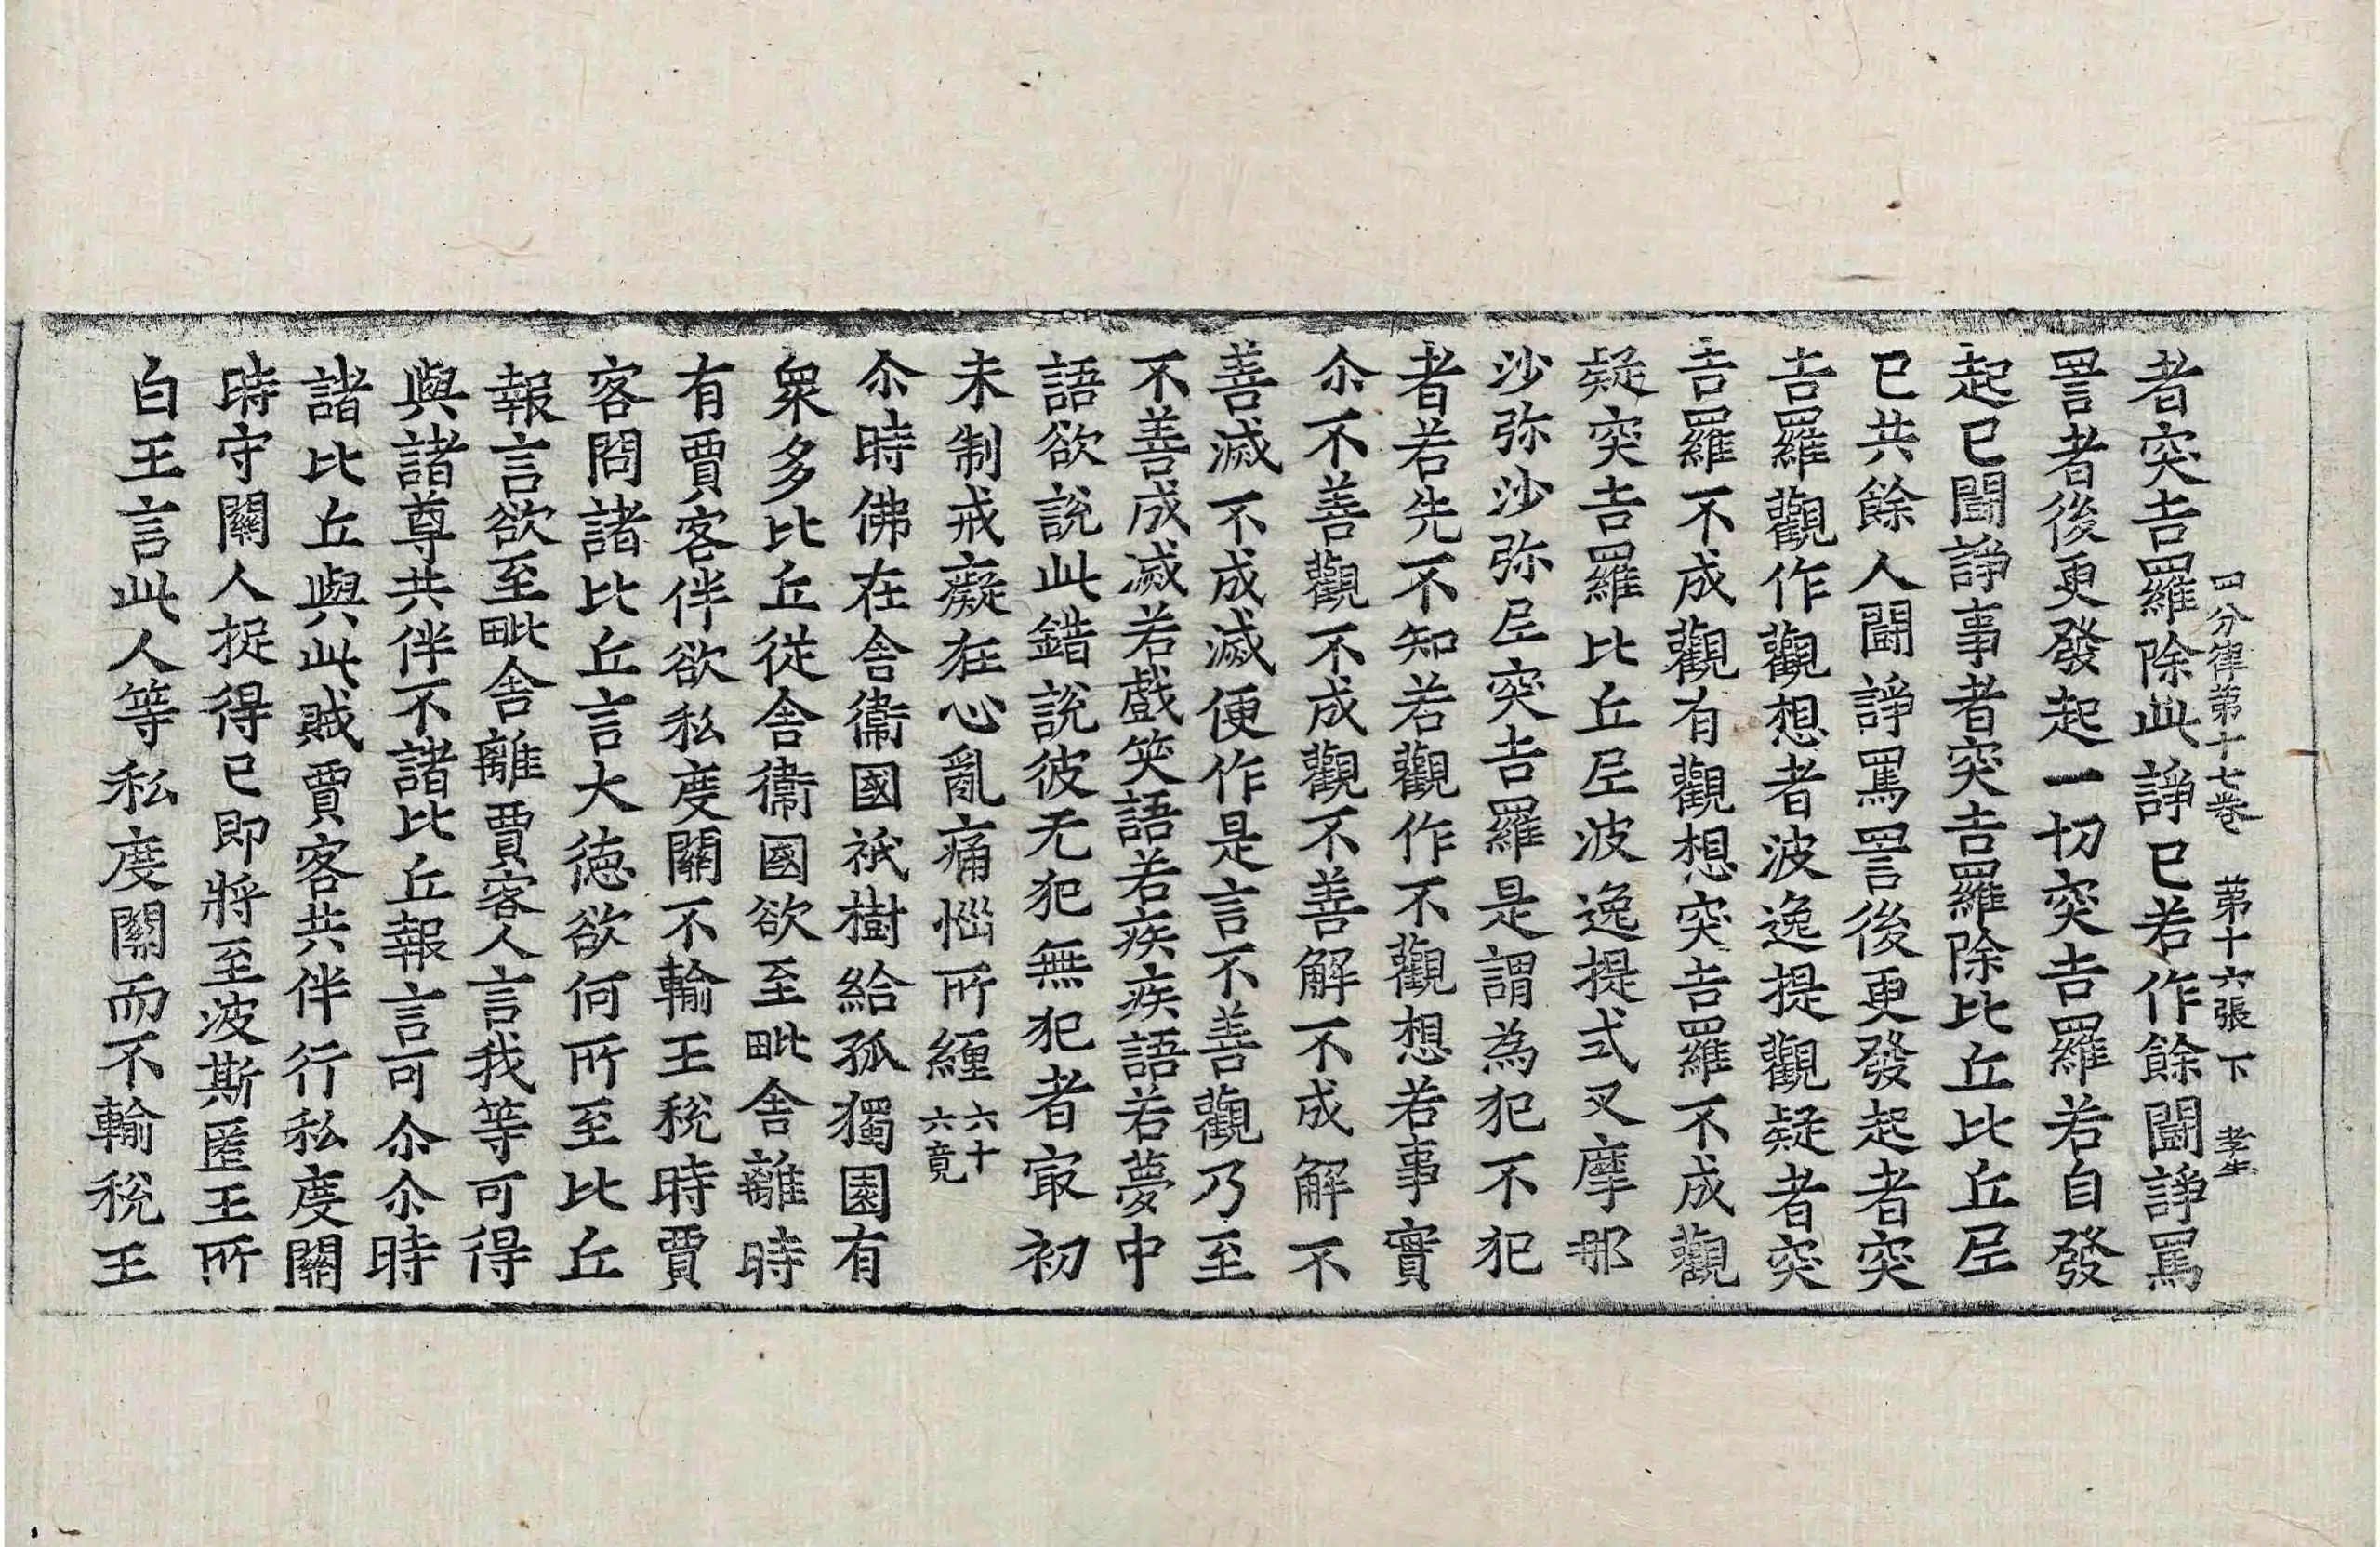 四分律第十七卷 第十六張 下 孝生
者突吉羅除此諍已若作餘鬪諍罵
詈者後更發起一切突吉羅若自發
起已鬪諍事者突吉羅除比丘比丘尼
已共餘人鬪諍罵詈後更發起者突
吉羅觀作觀想者波逸提觀疑者突
吉羅不成觀有觀想突吉羅不成觀
疑突吉羅比丘尼波逸提式叉摩那
沙弥沙弥尼突吉羅是謂為犯不犯
者若先不知若觀作不觀想若事實
尒不善觀不成觀不善解不成解不
善滅不成滅便作是言不善觀乃至
不善成滅若戲笑語若疾疾語若夢中
語欲說此錯說彼无犯無犯者㝡初
未制戒癡狂心亂痛惱所纏 六十六竟
尒時佛在舍衞國祇樹給孤獨園有
衆多比丘從舍衞國欲至毗舍離時
有賈客伴欲私度關不輸王稅時賈
客問諸比丘言大德欲何所至比丘
報言欲至毗舍離賈客人言我等可得
與諸尊共伴不諸比丘報言可尒尒時
諸比丘與此賊賈客共伴行私度關
時守關人捉得已即將至波斯匿王所
白王言此人等私度關而不輸稅王